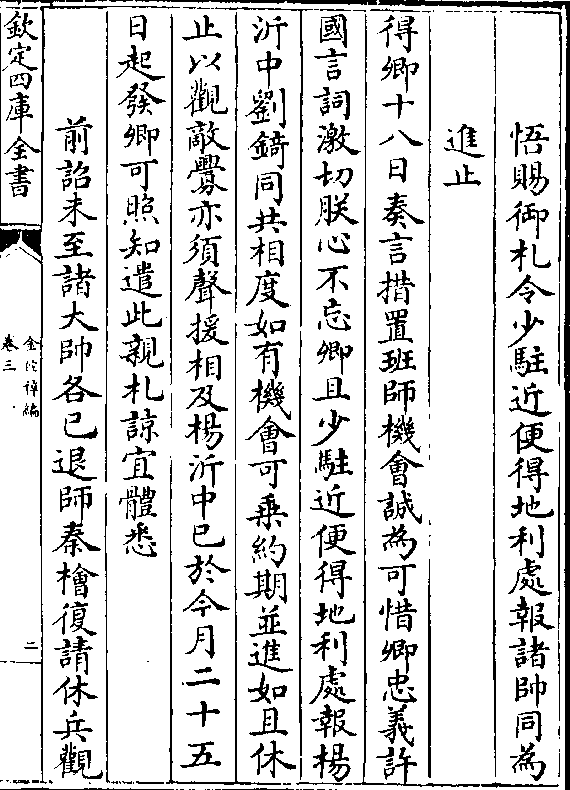 悟賜御札令少駐近便得地利處報諸帥同為
進止
得卿十八日奏言措置班師機會誠為可惜卿忠義許
國言詞激切朕心不忘卿且少駐近便得地利處報楊
沂中劉錡同共相度如有機會可乗約期並進如且休
止以觀敵釁亦須聲援相及楊沂中已於今月二十五
日起發卿可照知遣此親札諒宜體悉
前詔未至諸大帥各已退師秦檜復請休兵觀
欽定四庫全書
金佗稡編
卷三
二